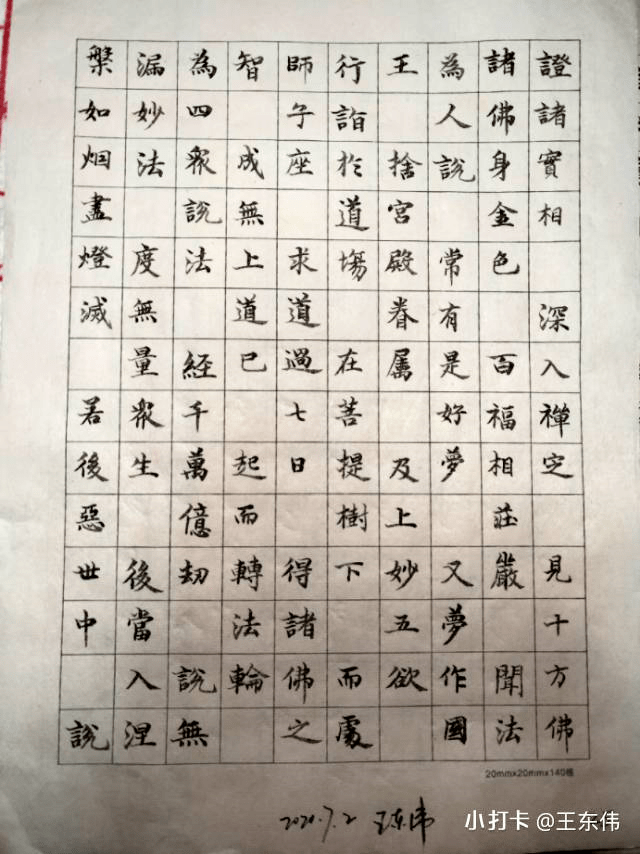 證諸實相 深入禪定 見十方佛
諸佛身金色 百福相莊嚴 聞法
為人說 常有是好夢 又夢作國
王 捨宮殿眷屬 及上妙五欲
行詣於道場 在菩提樹下 而處
師子座 求道過七日 得諸佛之
智 成無上道已 起而轉法輪
為四眾說法 經千萬億劫 說無
漏妙法 度無量眾生 後當入涅
槃如烟盡燈滅 若後惡世中 說
20mmx20mmx140格
2020.7.2 王东伟
小打卡 @王东伟